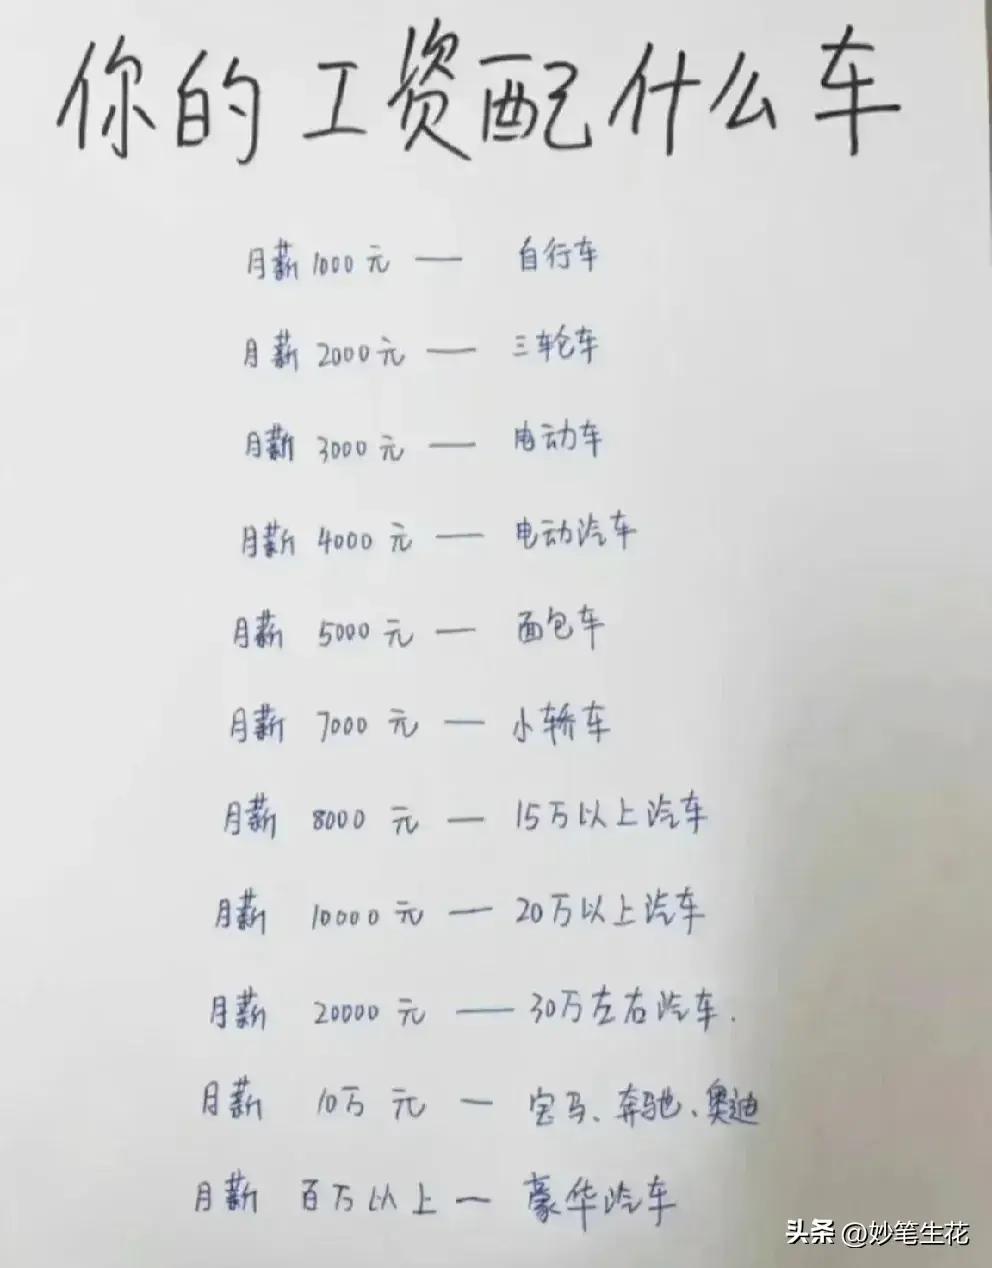 你的工资配什么车
月薪1000元 — 自行车
月薪2000元 — 三轮车
月薪3000元 — 电动车
月薪4000元 — 电动汽车
月薪5000元 — 面包车
月薪7000元 — 小轿车
月薪8000元 — 15万以上汽车
月薪10000元 — 20万以上汽车
月薪20000元 — 30万左右汽车.
月薪10万元 — 宝马、奔驰、奥迪
月薪百万以上 — 豪华汽车
头条 @妙笔生花